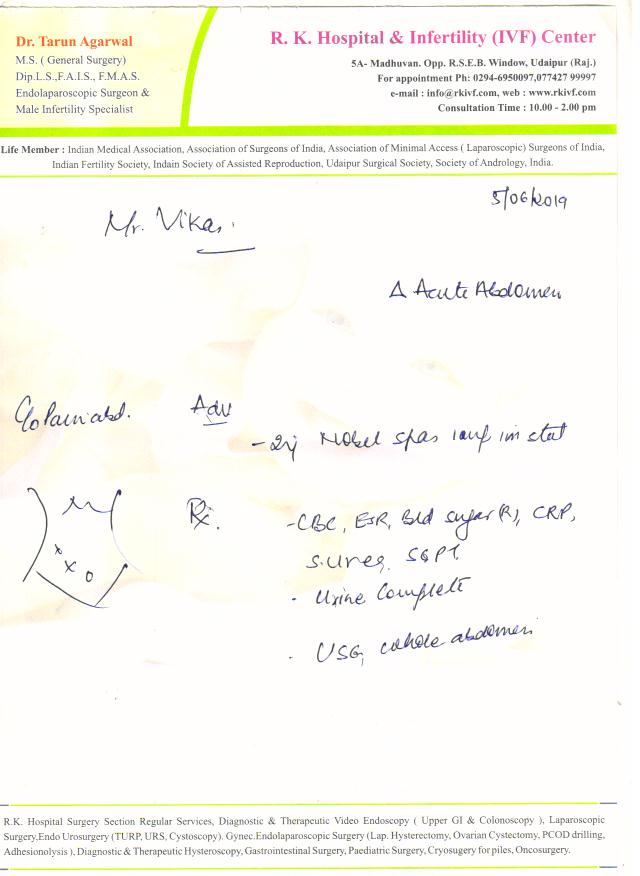 Dr. Tarun Agarwal
M.S. ( General Surgery)
Dip.L.S.,F.A.I.S., F.M.A.S.
Endolaparoscopic Surgeon &
Male Infertility Specialist
R. K. Hospital & Infertility (IVF) Center
5A- Madhuvan. Opp. R.S.E.B. Window, Udaipur (Raj.)
For appointment Ph: 0294-6950097,077427 99997
e-mail : info@rkivf.com, web : www.rkivf.com
Consultation Time : 10.00 - 2.00 pm
Life Member : Indian Medical Association, Association of Surgeons of India, Association of Minimal Access ( Laparoscopic) Surgeons of India,
Indian Fertility Society, Indain Society of Assisted Reproduction, Udaipur Surgical Society, Society of Andrology, India.
5/06/2019
Mr. Vikas.
Δ Acute Abdomen
C/o Pain abd.
Adv
- Inj Nobel spas 1amp im stat
Rx.
- CBC, ESR, Bld sugar (R), CRP,
S.urea, SGPT
- Urine Complete
- USG, whole abdomen
x
x o
R.K. Hospital Surgery Section Regular Services, Diagnostic & Therapeutic Video Endoscopy ( Upper GI & Colonoscopy ), Laparoscopic
Surgery,Endo Urosurgery (TURP, URS, Cystoscopy). Gynec.Endolaparoscopic Surgery (Lap. Hysterectomy, Ovarian Cystectomy, PCOD drilling,
Adhesionolysis ), Diagnostic & Therapeutic Hysteroscopy, Gastrointestinal Surgery, Paediatric Surgery, Cryosugery for piles, Oncosurgery.